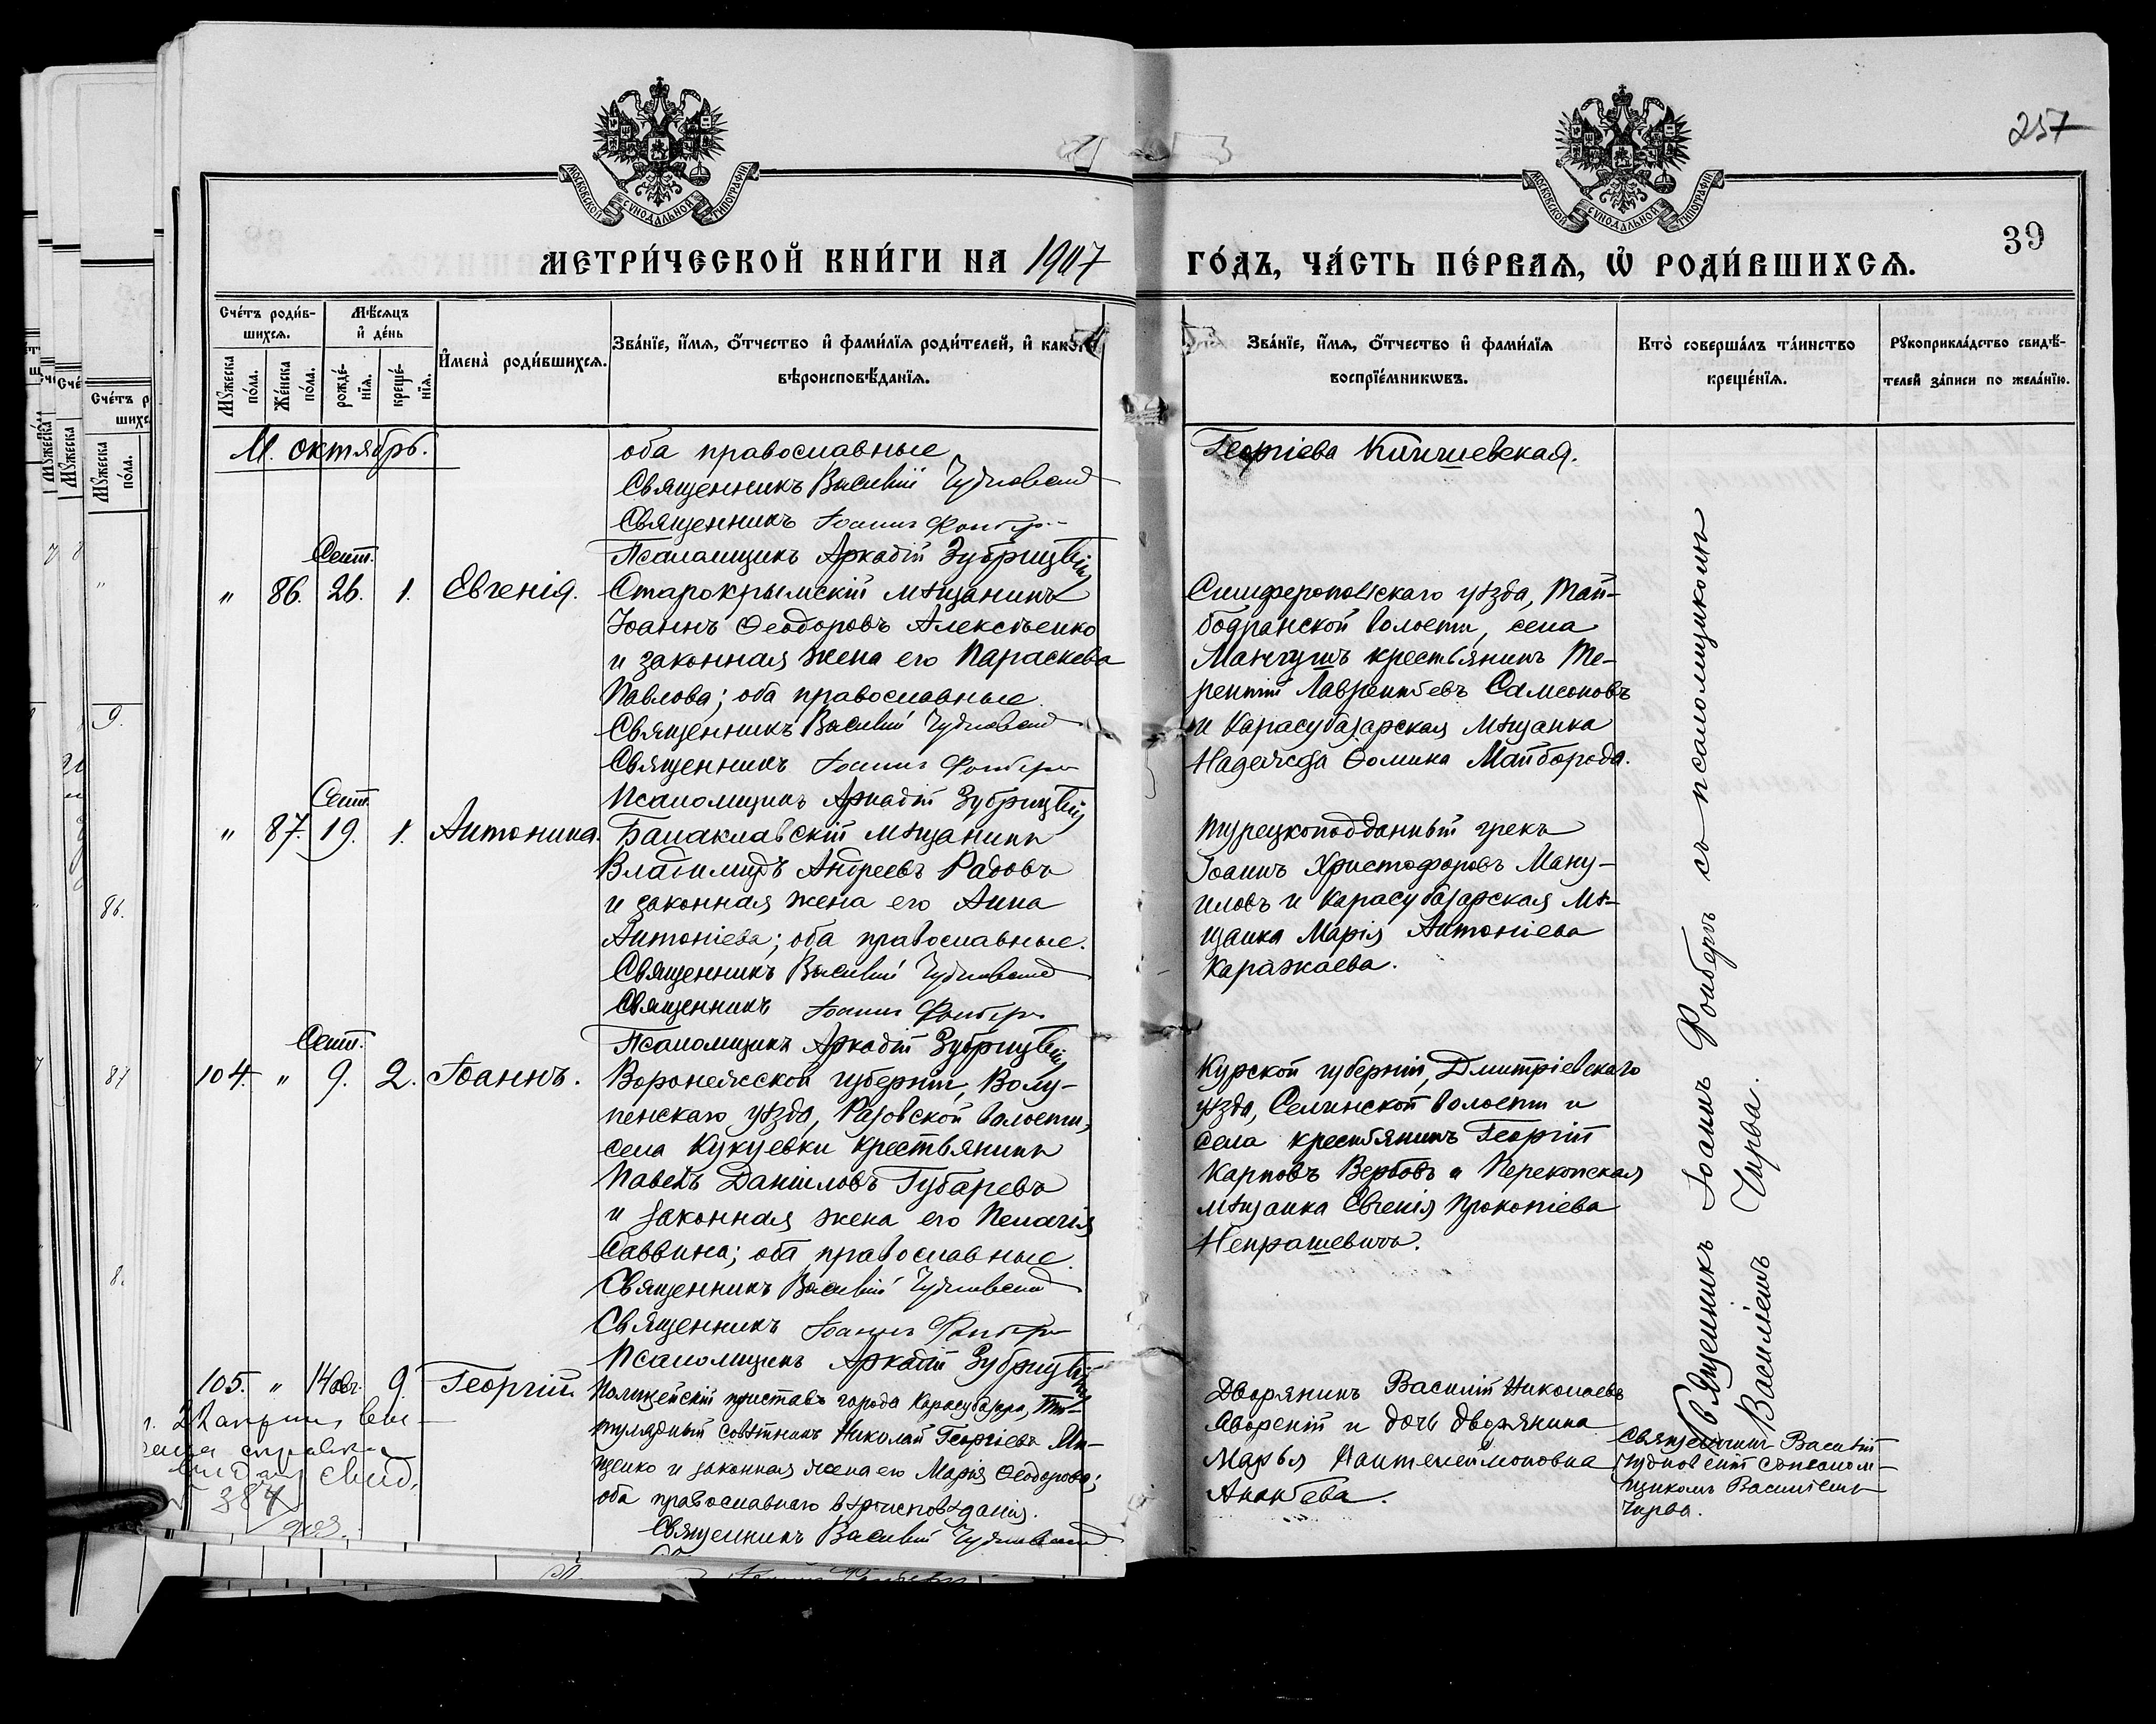 257
39
МОСКОВСКОЙ СѴНОДАЛЬНОЙ ТИПОГРАФІИ
МОСКОВСКОЙ СѴНОДАЛЬНОЙ ТИПОГРАФІИ
МЕТРИ́ЧЕСКОЙ КНИ́ГИ НА 1907
ГО́ДЪ, ЧА́СТЬ ПЕ́РВАЯ, Ѡ РОДИ́ВШИХСЯ.
Сче́тъ роди́в-
шихся.
Мѣ́сяцъ
и де́нь
Мꙋжеска
по́ла.
Же́нска
по́ла.
рожде́-
нїя.
креще́-
нїя.
И҆мена̀ роди́вшихся.
Зва́нїе, и҆́мя, ѻ҆́тчество и҆ фами́лїя роди́телей, и҆ како́гѡ
вѣроисповѣ́данїя.
Зва́нїе, и҆́мя, ѻ҆́тчество и҆ фами́лїя
воспрїе́мникѡвъ.
Кто̀ соверша́лъ та́инство
креще́нїя.
Рꙋкоприкла́дство свидѣ́-
телей за́писи по жела́нїю.
М. октябрь.
оба православные
Священникъ Василій Чудновскій
Священникъ Іоаннъ Фонберъ
Псаломщикъ Аркадій Зубрицкій
Георгіева Кишиневская.
Сент.
" 86. 26. 1. Евгенія.
Старокрымскій мѣщанинъ
Іоаннъ Ѳеодоровъ Алексѣенко
и законная жена его Параскева
Павлова; оба православные.
Священникъ Василій Чудновскій
Священникъ Іоаннъ Фонберъ
Псаломщикъ Аркадій Зубрицкій
Симферопольскаго уѣзда, Тай-
бодранской волости, села
Мангушъ крестьянинъ Те-
рентій Лаврентьевъ Самсоновъ
и Карасубазарская мѣщанка
Надежда Ѳомина Майборода.
Сент.
" 87. 19. 1. Антонина.
Балаклавскій мѣщанинъ
Владимиръ Андреевъ Радовъ
и законная жена его Анна
Антоніева; оба православные.
Священникъ Василій Чудновскій
Священникъ Іоаннъ Фонберъ
Псаломщикъ Аркадій Зубрицкій
Турецкоподданный грекъ
Іоаннъ Христофоровъ Ману-
иловъ и Карасубазарская мѣ-
щанка Марія Антоніева
Каражаева.
Сент.
104. " 9. 2. Іоаннъ.
Воронежской губерніи, Волу-
пенскаго уѣзда, Разовской волости,
села Кукуевки крестьянинъ
Павелъ Даніиловъ Губаревъ
и законная жена его Пелагія
Саввина; оба православные.
Священникъ Василій Чудновскій
Священникъ Іоаннъ Фонберъ
Псаломщикъ Аркадій Зубрицкій
Курской губерніи, Дмитріевскаго
уѣзда, Селинской волости и
села крестьянинъ Георгій
Карповъ Вербовъ и Перекопская
мѣщанка Евгенія Прокопіева
Непрашевичъ.
Священникъ Іоаннъ Фонберъ съ псаломщикомъ
Василіемъ Чирва.
105. " 14 авг. 9. Георгій
Полицейскій приставъ города Карасубазара, Ти-
тулярный совѣтникъ Николай Георгіевъ
и законная жена его Марія Ѳеодорова;
оба православнаго вѣроисповѣданія.
Священникъ Василій Чудновскій
Дворянинъ Василій Николаевъ
Яворскій и дочь дворянина
Марья Пантелеймоновна
Ананьева.
Священникъ Василій
Чудновскій съ псалом-
щикомъ Василіемъ
Чирва.
22 апрѣля
справка
свид.
384